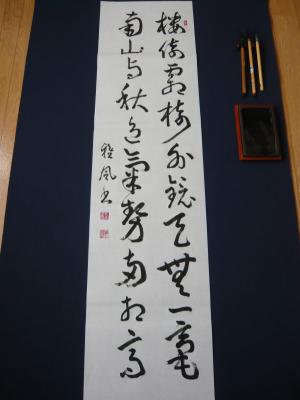 樓倚霜樹外鏡天無一毫
南山与秋色氣勢兩相高
風書